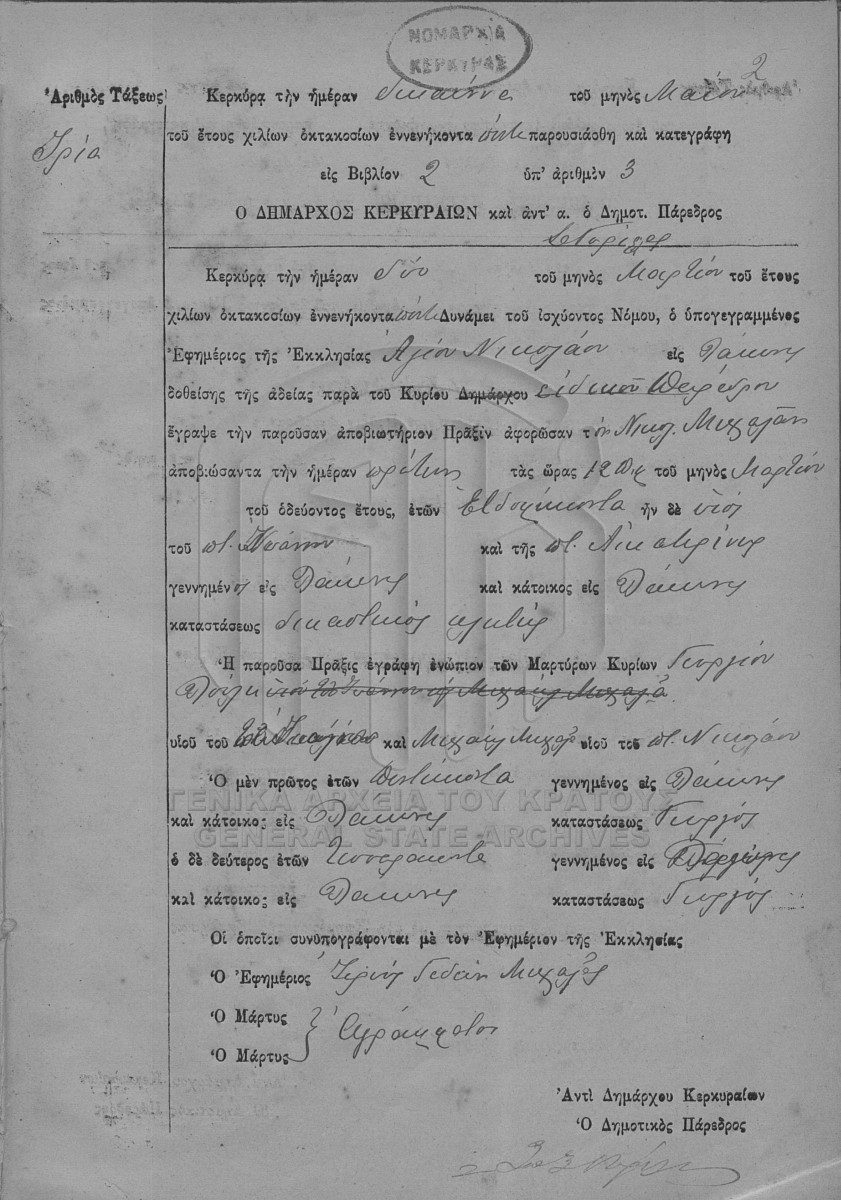 ΝΟΜΑΡΧΙΑ
ΚΕΡΚΥΡΑΣ
2
Ἀριθμὸς Τάξεως
Τρία
Κερκύρᾳ τὴν ἡμέραν τοῦ μηνὸς Μαΐου
τοῦ ἔτους χιλίων ὀκτακοσίων ἐννενήκοντα πέντε παρουσιάσθη καὶ κατεγράφη
εἰς Βιβλίον 2 ὑπ' ἀριθμὸν 3
Ο ΔΗΜΑΡΧΟΣ ΚΕΡΚΥΡΑΙΩΝ καὶ ἀντ' α. ὁ Δημοτ. Πάρεδρος
Κερκύρᾳ τὴν ἡμέραν δύο τοῦ μηνὸς Μαρτίου τοῦ ἔτους
χιλίων ὀκτακοσίων ἐννενήκοντα πέντε Δυνάμει τοῦ ἰσχύοντος Νόμου, ὁ ὑπογεγραμμένος
Ἐφημέριος τῆς Ἐκκλησίας Ἁγίου Νικολάου εἰς Δάκωνες
δοθείσης τῆς ἀδείας παρὰ τοῦ Κυρίου Δημάρχου εἰδικοῦ Παρέδρου
ἔγραψε τὴν παροῦσαν ἀποβιωτήριον Πρᾶξιν ἀφορῶσαν τὸν Νικολ. Μιχαλᾶν
ἀποβιώσαντα τὴν ἡμέραν πρώτην τὰς ὥρας 12 τοῦ μηνὸς Μαρτίου
τοῦ ὁδεύοντος ἔτους, ἐτῶν Ἑβδομήκοντα ἦν δὲ υἱός
τοῦ π. καὶ τῆς π. Αἰκατερίνης
γεννημένος εἰς Δάκωνες καὶ κάτοικος εἰς Δάκωνες
καταστάσεως δικαστικὸς κλητήρ
Ἡ παροῦσα Πρᾶξις ἐγράφη ἐνώπιον τῶν Μαρτύρων Κυρίων Γεωργίου
Μιχαὴλ Μιχαλᾶ
υἱοῦ τοῦ καὶ Μιχαὴλ Μιχαλᾶ υἱοῦ τοῦ π. Νικολάου
Ὁ μὲν πρῶτος ἐτῶν Πεντήκοντα γεννημένος εἰς Δάκωνες
ΓΕΝΙΚΑ ΑΡΧΕΙΑ ΤΟΥ ΚΡΑΤΟΥΣ
καὶ κάτοικος εἰς Δάκωνες καταστάσεως Γεωργός
GENERAL STATE ARCHIVES
ὁ δὲ δεύτερος ἐτῶν Τεσσαράκοντα γεννημένος εἰς
καὶ κάτοικος εἰς Δάκωνες καταστάσεως Γεωργός
Οἱ ὁποῖοι συνυπογράφονται μὲ τὸν Ἐφημέριον τῆς Ἐκκλησίας
Ὁ Ἐφημέριος Ἱερεὺς Γεδεὼν Μιχαλᾶς
Ὁ Μάρτυς
Ἀγράμματοι
Ὁ Μάρτυς
Ἀντὶ Δημάρχου Κερκυραίων
Ὁ Δημοτικὸς Πάρεδρος